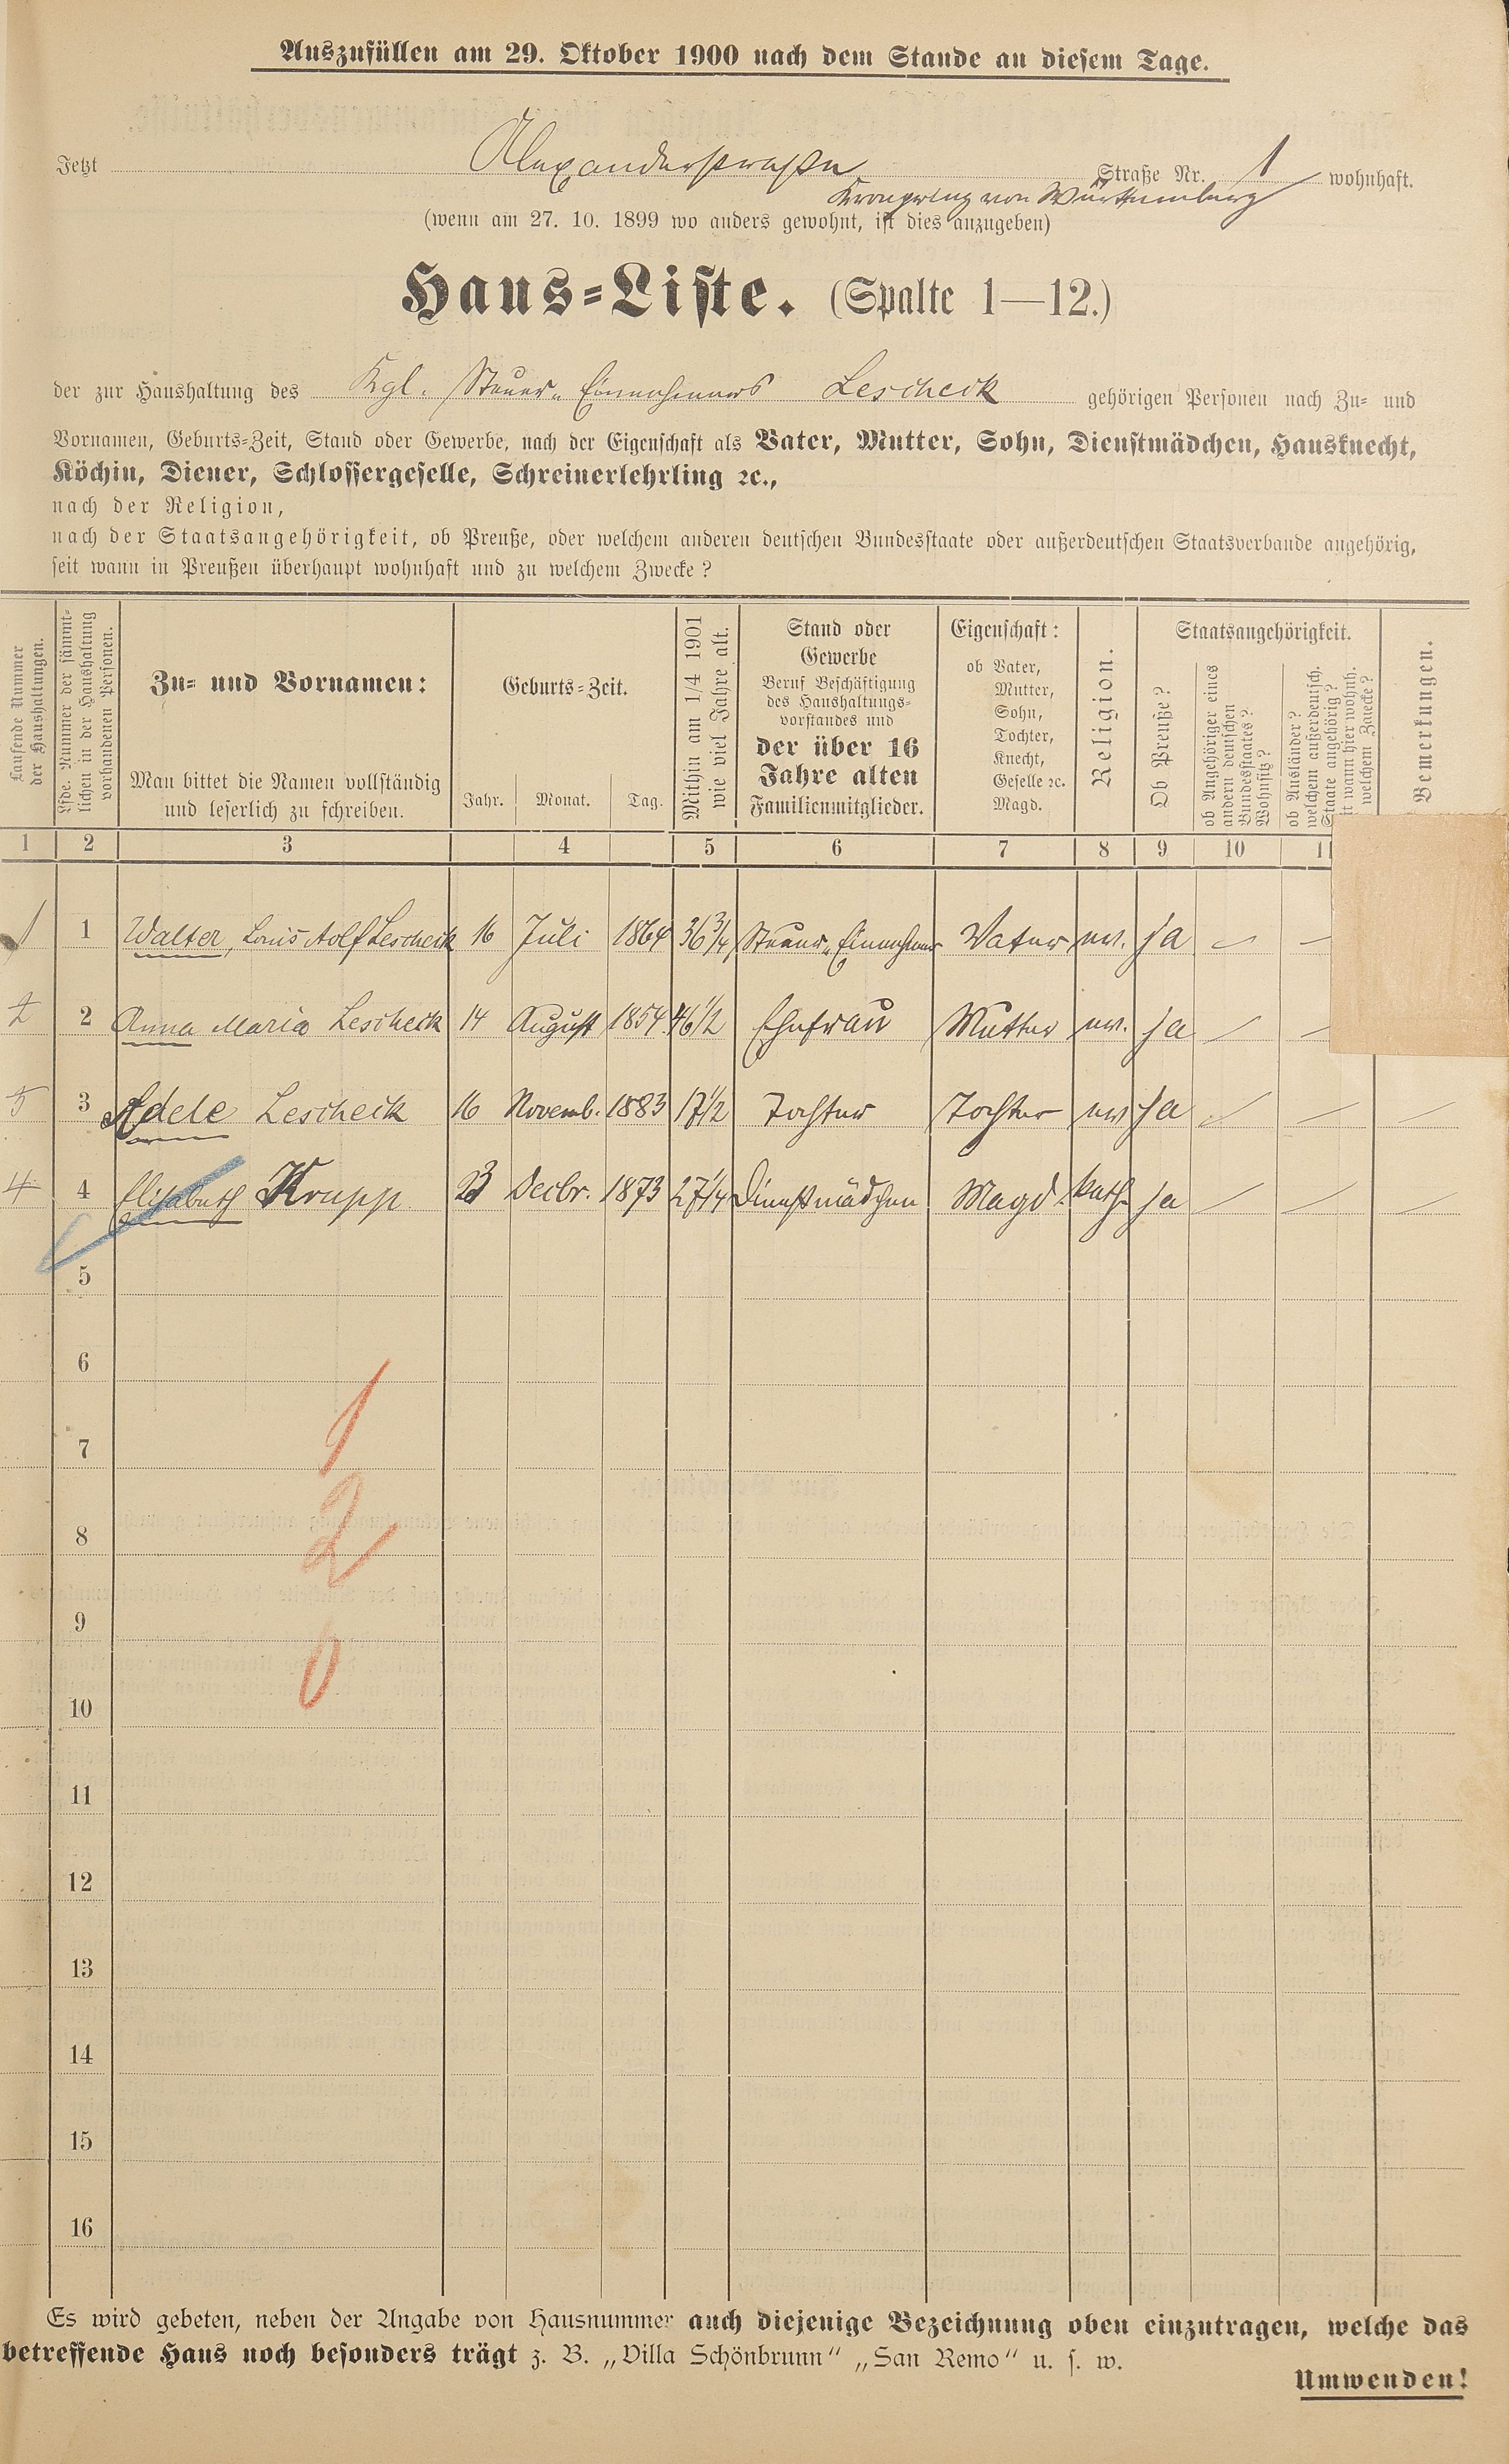 Auszufüllen am 29. Oktober 1900 nach dem Stande an diesem Tage.
Jetzt Alexanderstraße Straße Nr. 1 wohnhaft.
Kronprinz von Württemberg
(wenn am 27. 10. 1899 wo anders gewohnt, ist dies anzugeben)
Haus-Liste. (Spalte 1—12.)
der zur Haushaltung des Kgl. Steuer-Einnehmers Lescheck gehörigen Personen nach Zu- und
Vornamen, Geburts-Zeit, Stand oder Gewerbe, nach der Eigenschaft als Vater, Mutter, Sohn, Dienstmädchen, Hausknecht,
Köchin, Diener, Schlossergeselle, Schreinerlehrling ꝛc.,
nach der Religion,
nach der Staatsangehörigkeit, ob Preuße, oder welchem anderen deutschen Bundesstaate oder außerdeutschen Staatsverbande angehörig,
seit wann in Preußen überhaupt wohnhaft und zu welchem Zwecke?
Laufende Nummer
der Haushaltungen.
Lfde. Nummer der sämmt-
lichen in der Haushaltung
vorhandenen Personen.
Zu- und Vornamen:
Man bittet die Namen vollständig
und leserlich zu schreiben.
Geburts-Zeit.
Jahr. Monat. Tag.
Mithin am 1/4 1901
wie viel Jahre alt.
Stand oder
Gewerbe
Beruf Beschäftigung
des Haushaltungs-
vorstandes und
der über 16
Jahre alten
Familienmitglieder.
Eigenschaft:
ob Vater,
Mutter,
Sohn,
Tochter,
Knecht,
Geselle ꝛc.
Magd.
Religion.
Staatsangehörigkeit.
Ob Preuße?
ob Angehöriger eines
andern deutschen
Bundesstaates?
Wohnsitz?
ob Ausländer?
welchem außerdeutsch.
Staate angehörig?
it wann hier wohnh.
welchem Zwecke?
Bemerkungen.
1 2 3 4 5 6 7 8 9 10 11
1 1 Walter, Louis Adolf Lescheck 16 Juli 1864 36 3/4 Steuer-Einnehmer Vater ev. ja — —
2 2 Anna Maria Lescheck 14 August 1854 46 1/2 Ehefrau Mutter ev. ja — —
3 3 Adele Lescheck 16 Novemb. 1883 17 1/2 Tochter Tochter ev ja — — —
4 4 Elisabeth Krupp 23 Decbr. 1873 27 1/4 Dienstmädchen Magd. kath. ja — — —
5
6
1
7
2
8
9
0
10
11
12
13
14
15
16
Es wird gebeten, neben der Angabe von Hausnummer auch diejenige Bezeichnung oben einzutragen, welche das
betreffende Haus noch besonders trägt z. B. „Villa Schönbrunn“ „San Remo“ u. s. w.
Umwenden!